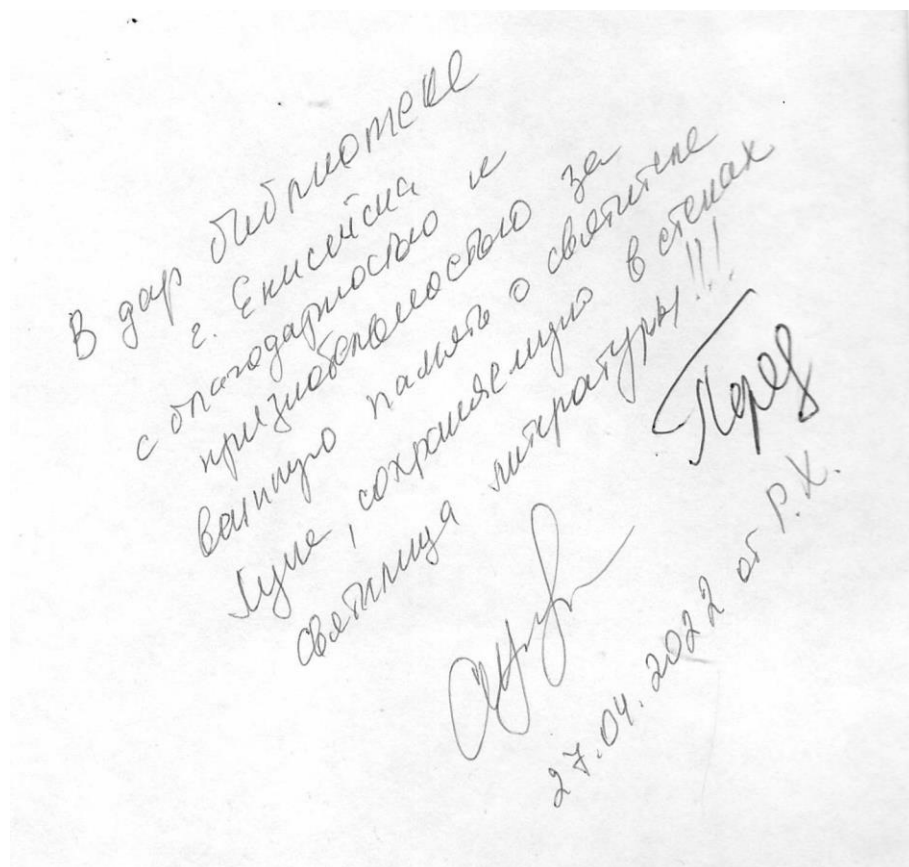 В дар библиотеке
г. Енисейска
с благодарностью и
признательностью за
вашную память о святителе
Луке, сохраняемую в стенах
святилища литературы!!!
27.04.2022 от Р.Х.